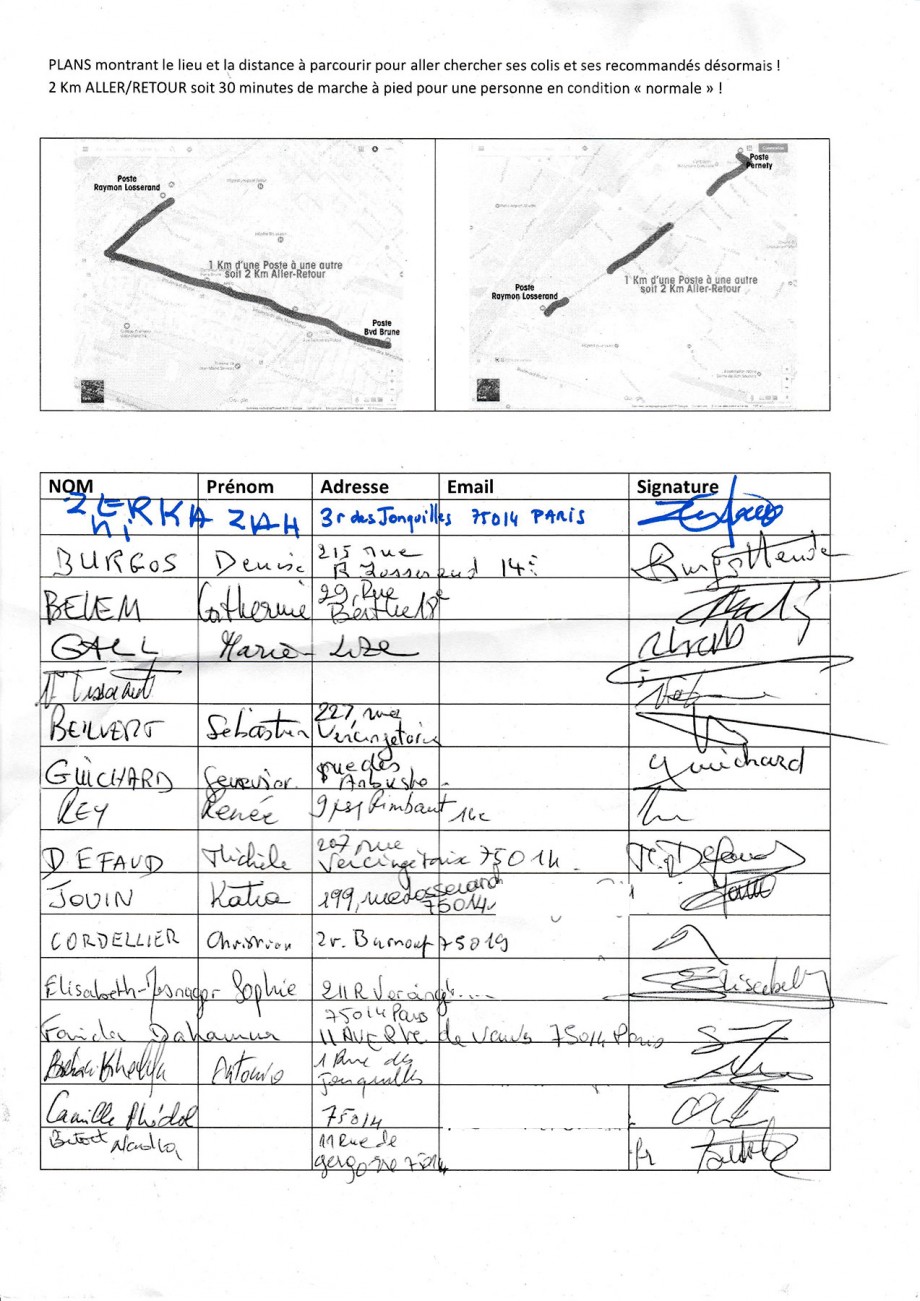 PLANS montrant le lieu et la distance à parcourir pour aller chercher ses colis et ses recommandés désormais !
2 Km ALLER/RETOUR soit 30 minutes de marche à pied pour une personne en condition « normale » !
Poste
Raymon Losserand
1 Km d'une Poste à une autre
soit 2 Km Aller-Retour
Poste
Bvd Brune
Poste
Pernety
1 Km d'une Poste à une autre
soit 2 Km Aller-Retour
Poste
Raymon Losserand
NOM Prénom Adresse Email Signature
ZERKA ZIAH 3 r des Jonquilles 75014 PARIS
BURGOS Denise 215 rue
R Losserand 14è
BELEM Catherine 29, Rue
Berthe 18e
GALL Marie-Lize
BEILVERT Sébastien 227, rue
Vercingetorix
GUICHARD rue des
Arbustes Guichard
REY Renée 9 psg Rimbaut 14e
DEFAUD Michèle 207 rue
Vercingetorix 75014 M. Defaud
JOUIN Katia 199, rue Losserand
75014
CORDELLIER Christian 2 r. Burnouf 75019
Elisabeth- Sophie 211 R Vercinget.... Elisabeth
75014 Paris
Farida 11 AVE de Vanves 75014 Paris
Antonio 1 Rue des
Jonquilles
Camille 75014
11 Rue de
75014